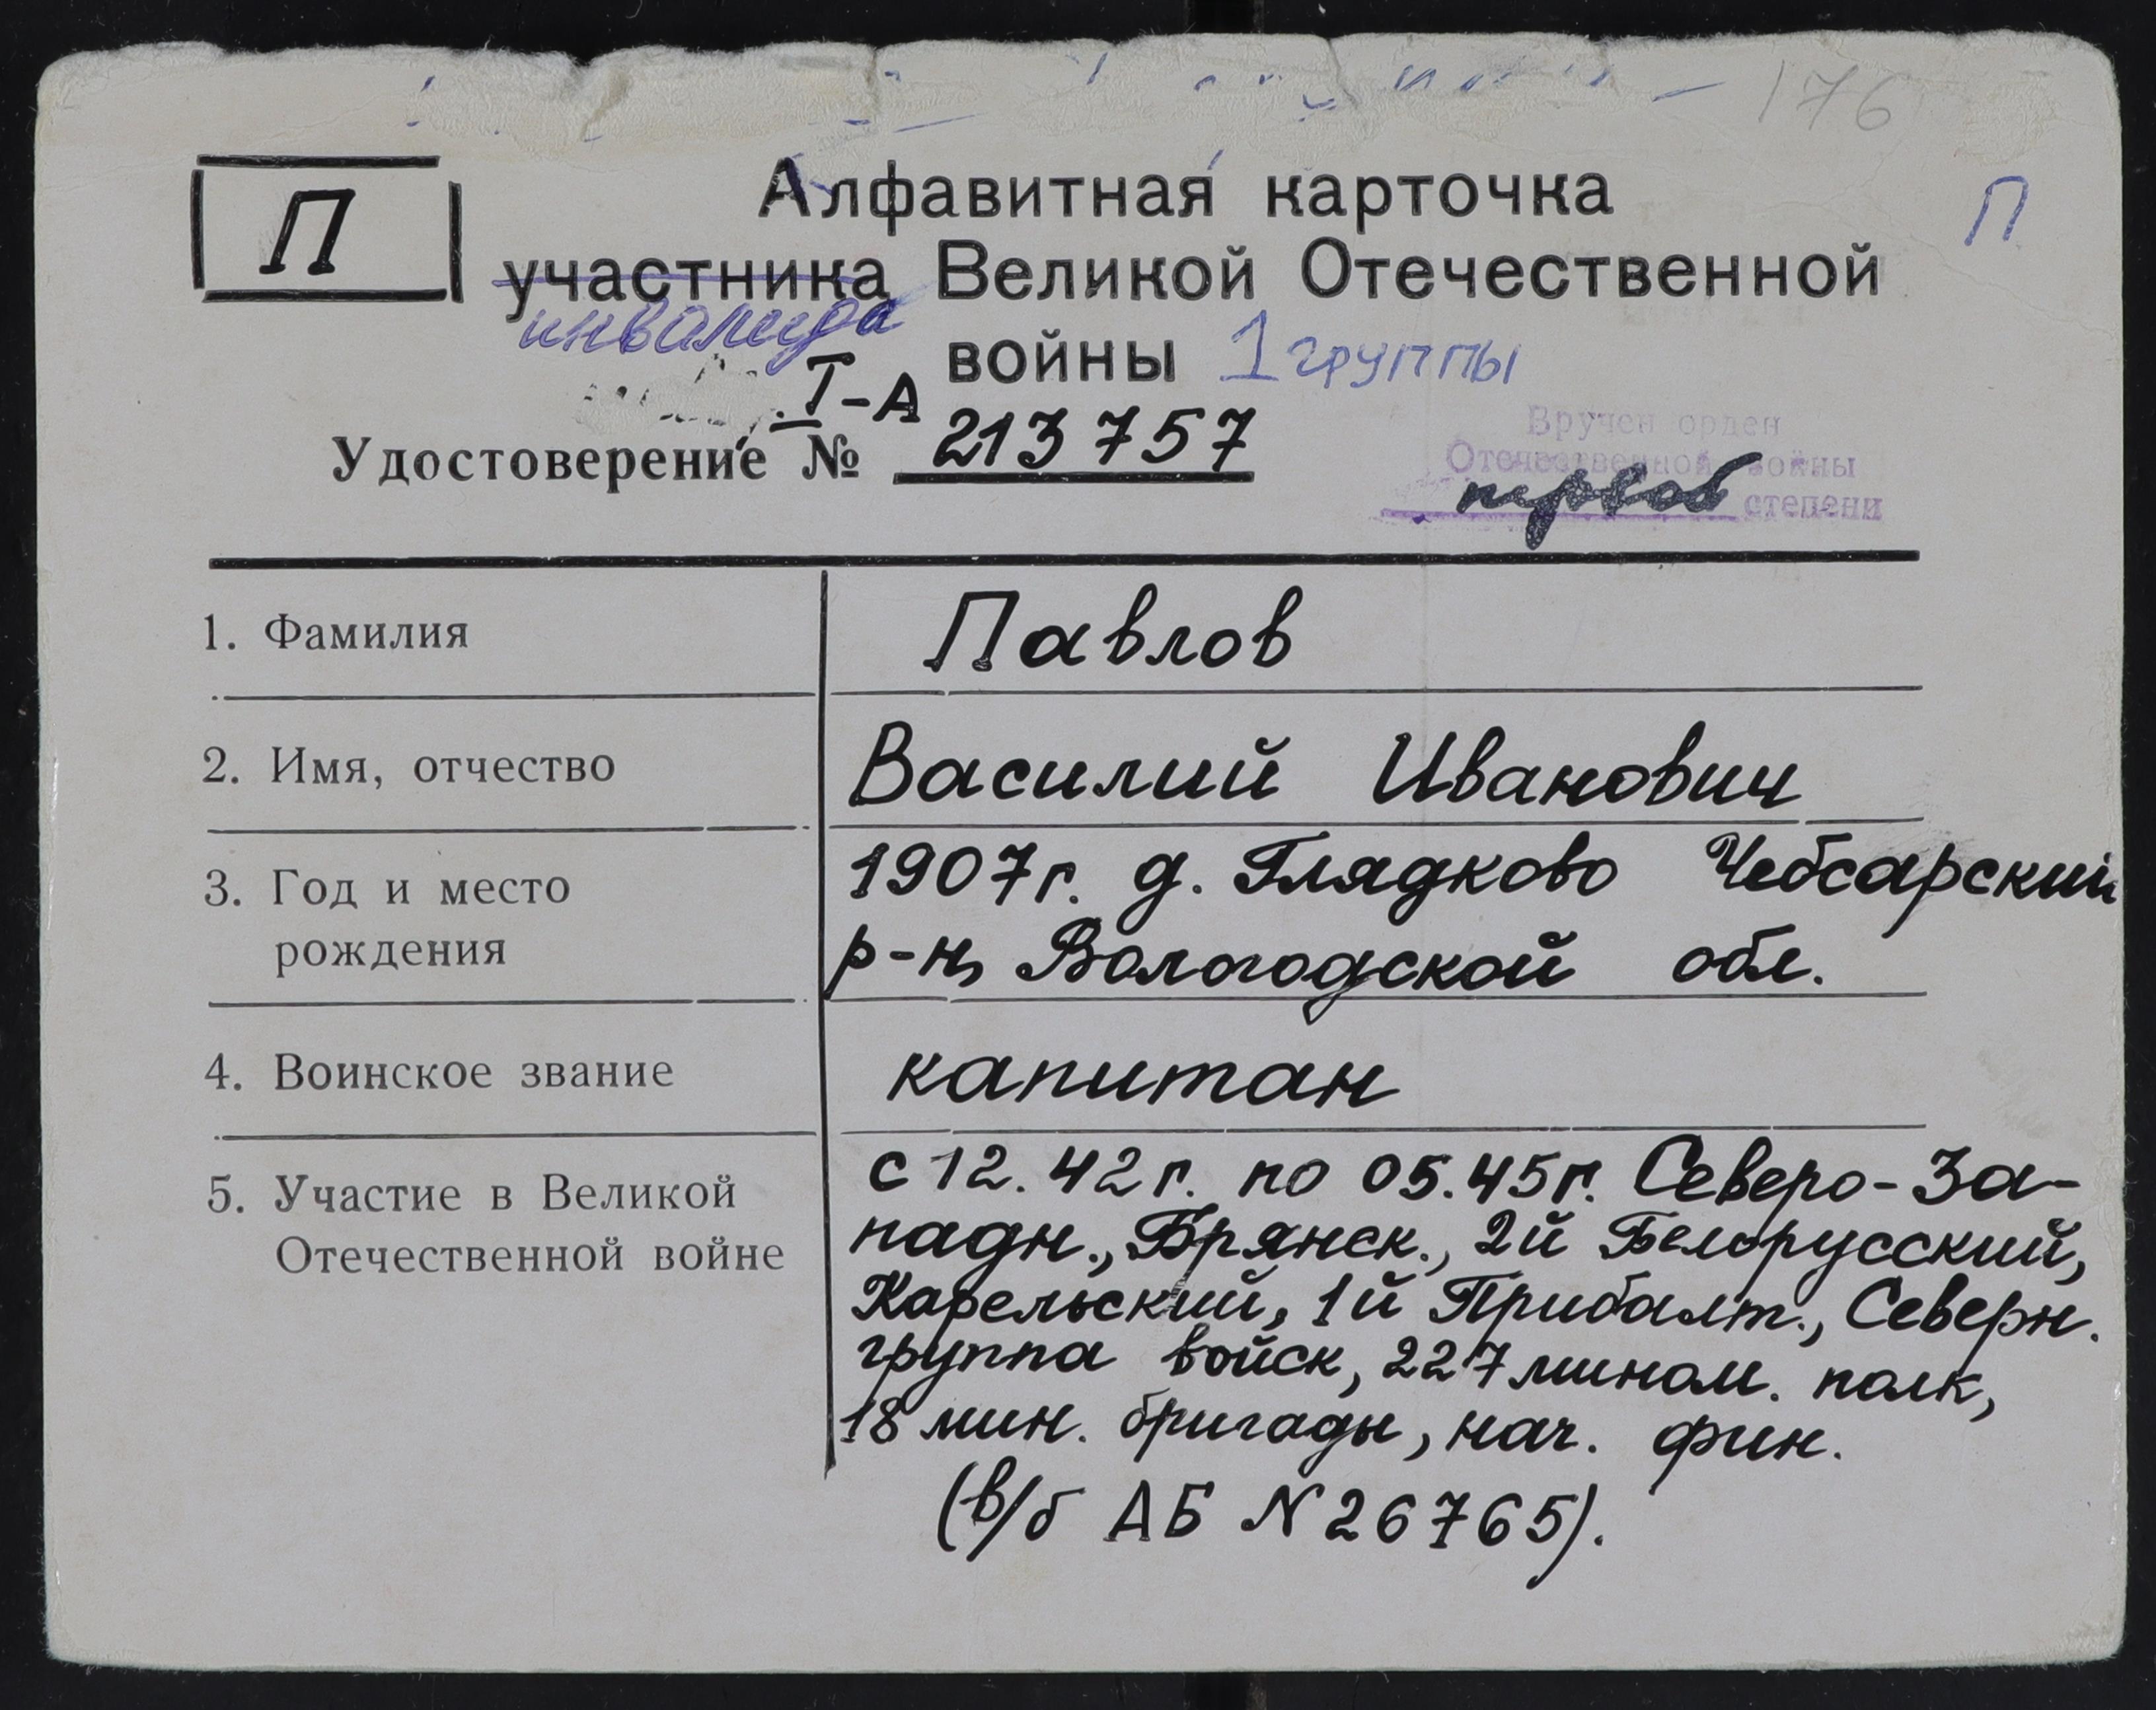 176
П
Алфавитная карточка
П
участника Великой Отечественной
инвалида
войны 1 группы
Т-А
Удостоверение № 213757
Вручен орден
Отечественной войны
первой степени
1. Фамилия
Павлов
2. Имя, отчество
Василий Иванович
3. Год и место
рождения
1907г. д. Глядково Чебсарский
р-н, Вологодской обл.
4. Воинское звание
капитан
5. Участие в Великой
Отечественной войне
с 12.42г. по 05.45г. Северо-За-
падн., Брянск., 2й Белорусский,
Карельский, 1й Прибалт., Северн.
группа войск, 227 мином. полк,
18 мин. бригады, нач. фин.
(в/б АБ N 26765).